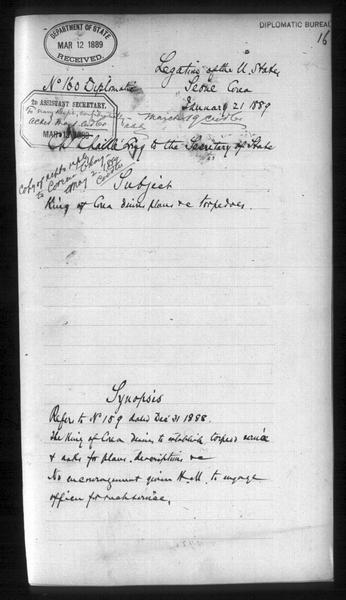 DIPLOMATIC BUREAU
16
DEPARTMENT OF STATE
MAR 12 1889
RECEIVED.
Legation of the U. States
Nº 160 Diplomatic
Seoul Corea
January 21 1889
2D ASSISTANT SECRETARY.
MAR 1889
March 19
Ch. Chaillé Long to the Secretary of State
Copy of
to Corean
May 2, 1889
Subject
King of Corea desires plans &c torpedoes.
Synopsis
Refers to Nº 159 dated Dec 31 1888.
The King of Corea desires to establish torpedo service
& asks for plans, descriptions &c
No encouragement given H.M. to engage
officer for such service.